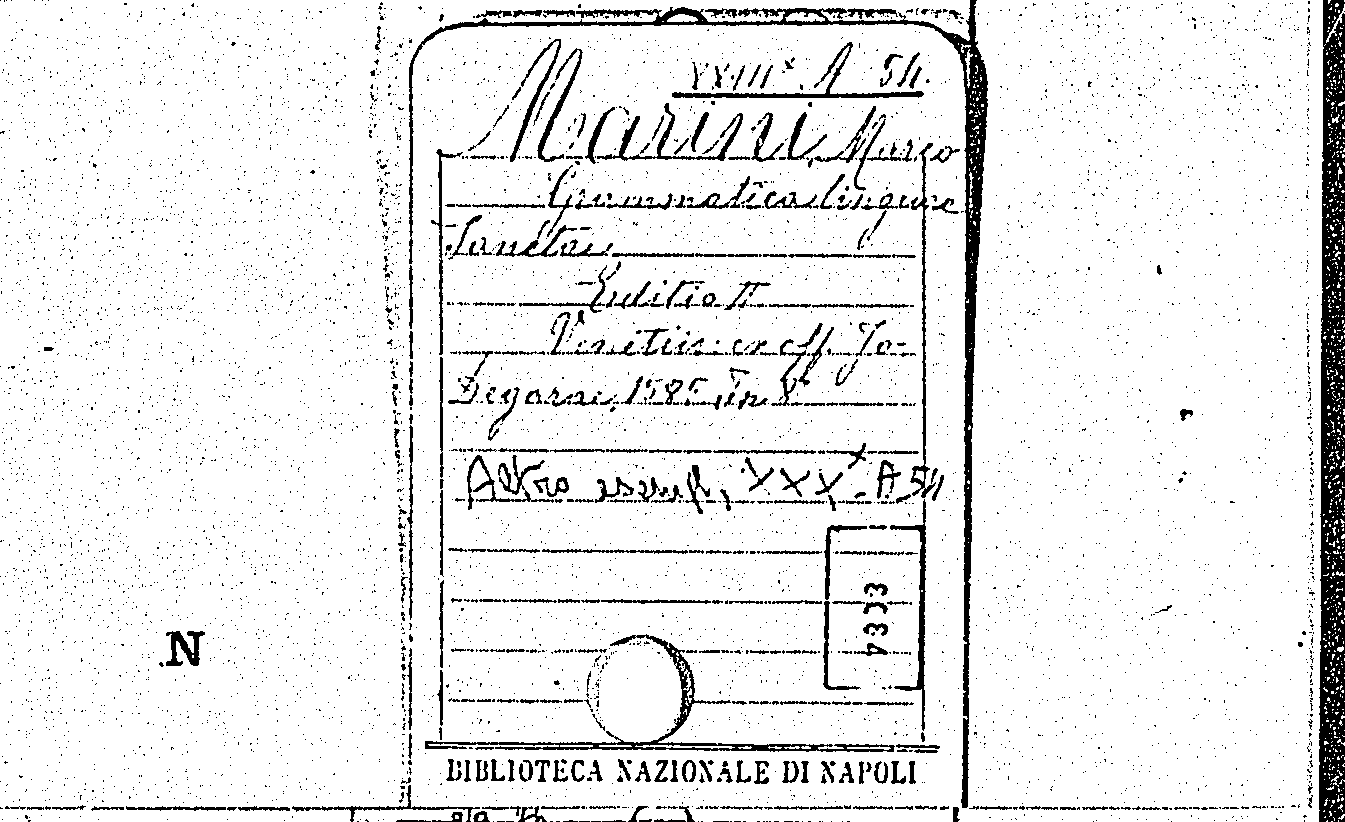 XXIII* A 54.
Marini, Marco
Grammatica linguae
Sanctae
Enditio II
Venetiis: ex off. Jo-
Degarae, 1585. In 8°
Altro esempl, XXX* A 54
BIBLIOTECA NAZIONALE DI NAPOLI
N